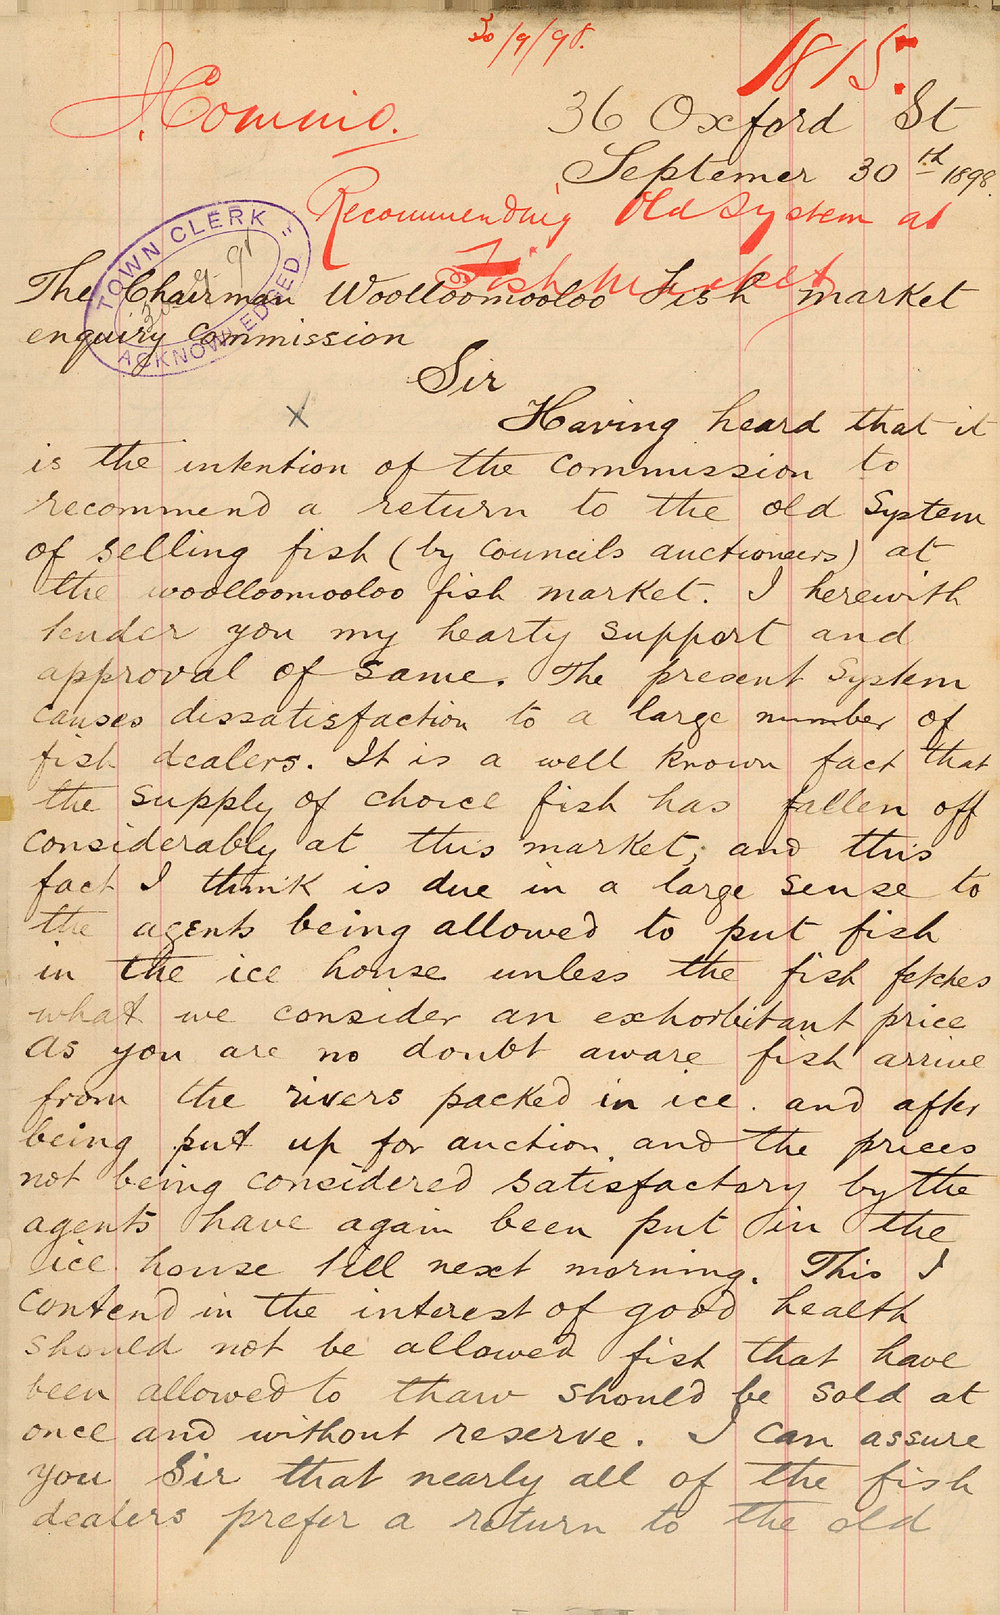 30/9/98.
1815.
J. Comino.
36 Oxford St
Septemer 30th 1898.
Recommending Old System at
Fish Market
TOWN CLERK
ACKNOWLEDGED
The Chairman Woolloomooloo Fish market
enquiry commission
Sir
x
Having heard that it
is the intention of the commission to
recommend a return to the old System
of selling fish (by Councils auctioneers) at
the woolloomooloo fish market. I herewith
tender you my hearty support and
approval of same. The present System
causes dissatisfaction to a large number of
fish dealers. It is a well known fact that
the supply of choice fish has fallen off
considerably at this market, and this
fact I think is due in a large sense to
the agents being allowed to put fish
in the ice house unless the fish fetches
what we consider an exhorbitant price
As you are no doubt aware fish arrive
from the rivers packed in ice. and after
being put up for auction, and the prices
not being considered satisfactory by the
agents have again been put in the
ice house till next morning. This I
contend in the interest of good health
should not be allowed fish that have
been allowed to thaw should be sold at
once and without reserve. I can assure
you Sir that nearly all of the fish
dealers prefer a return to the old